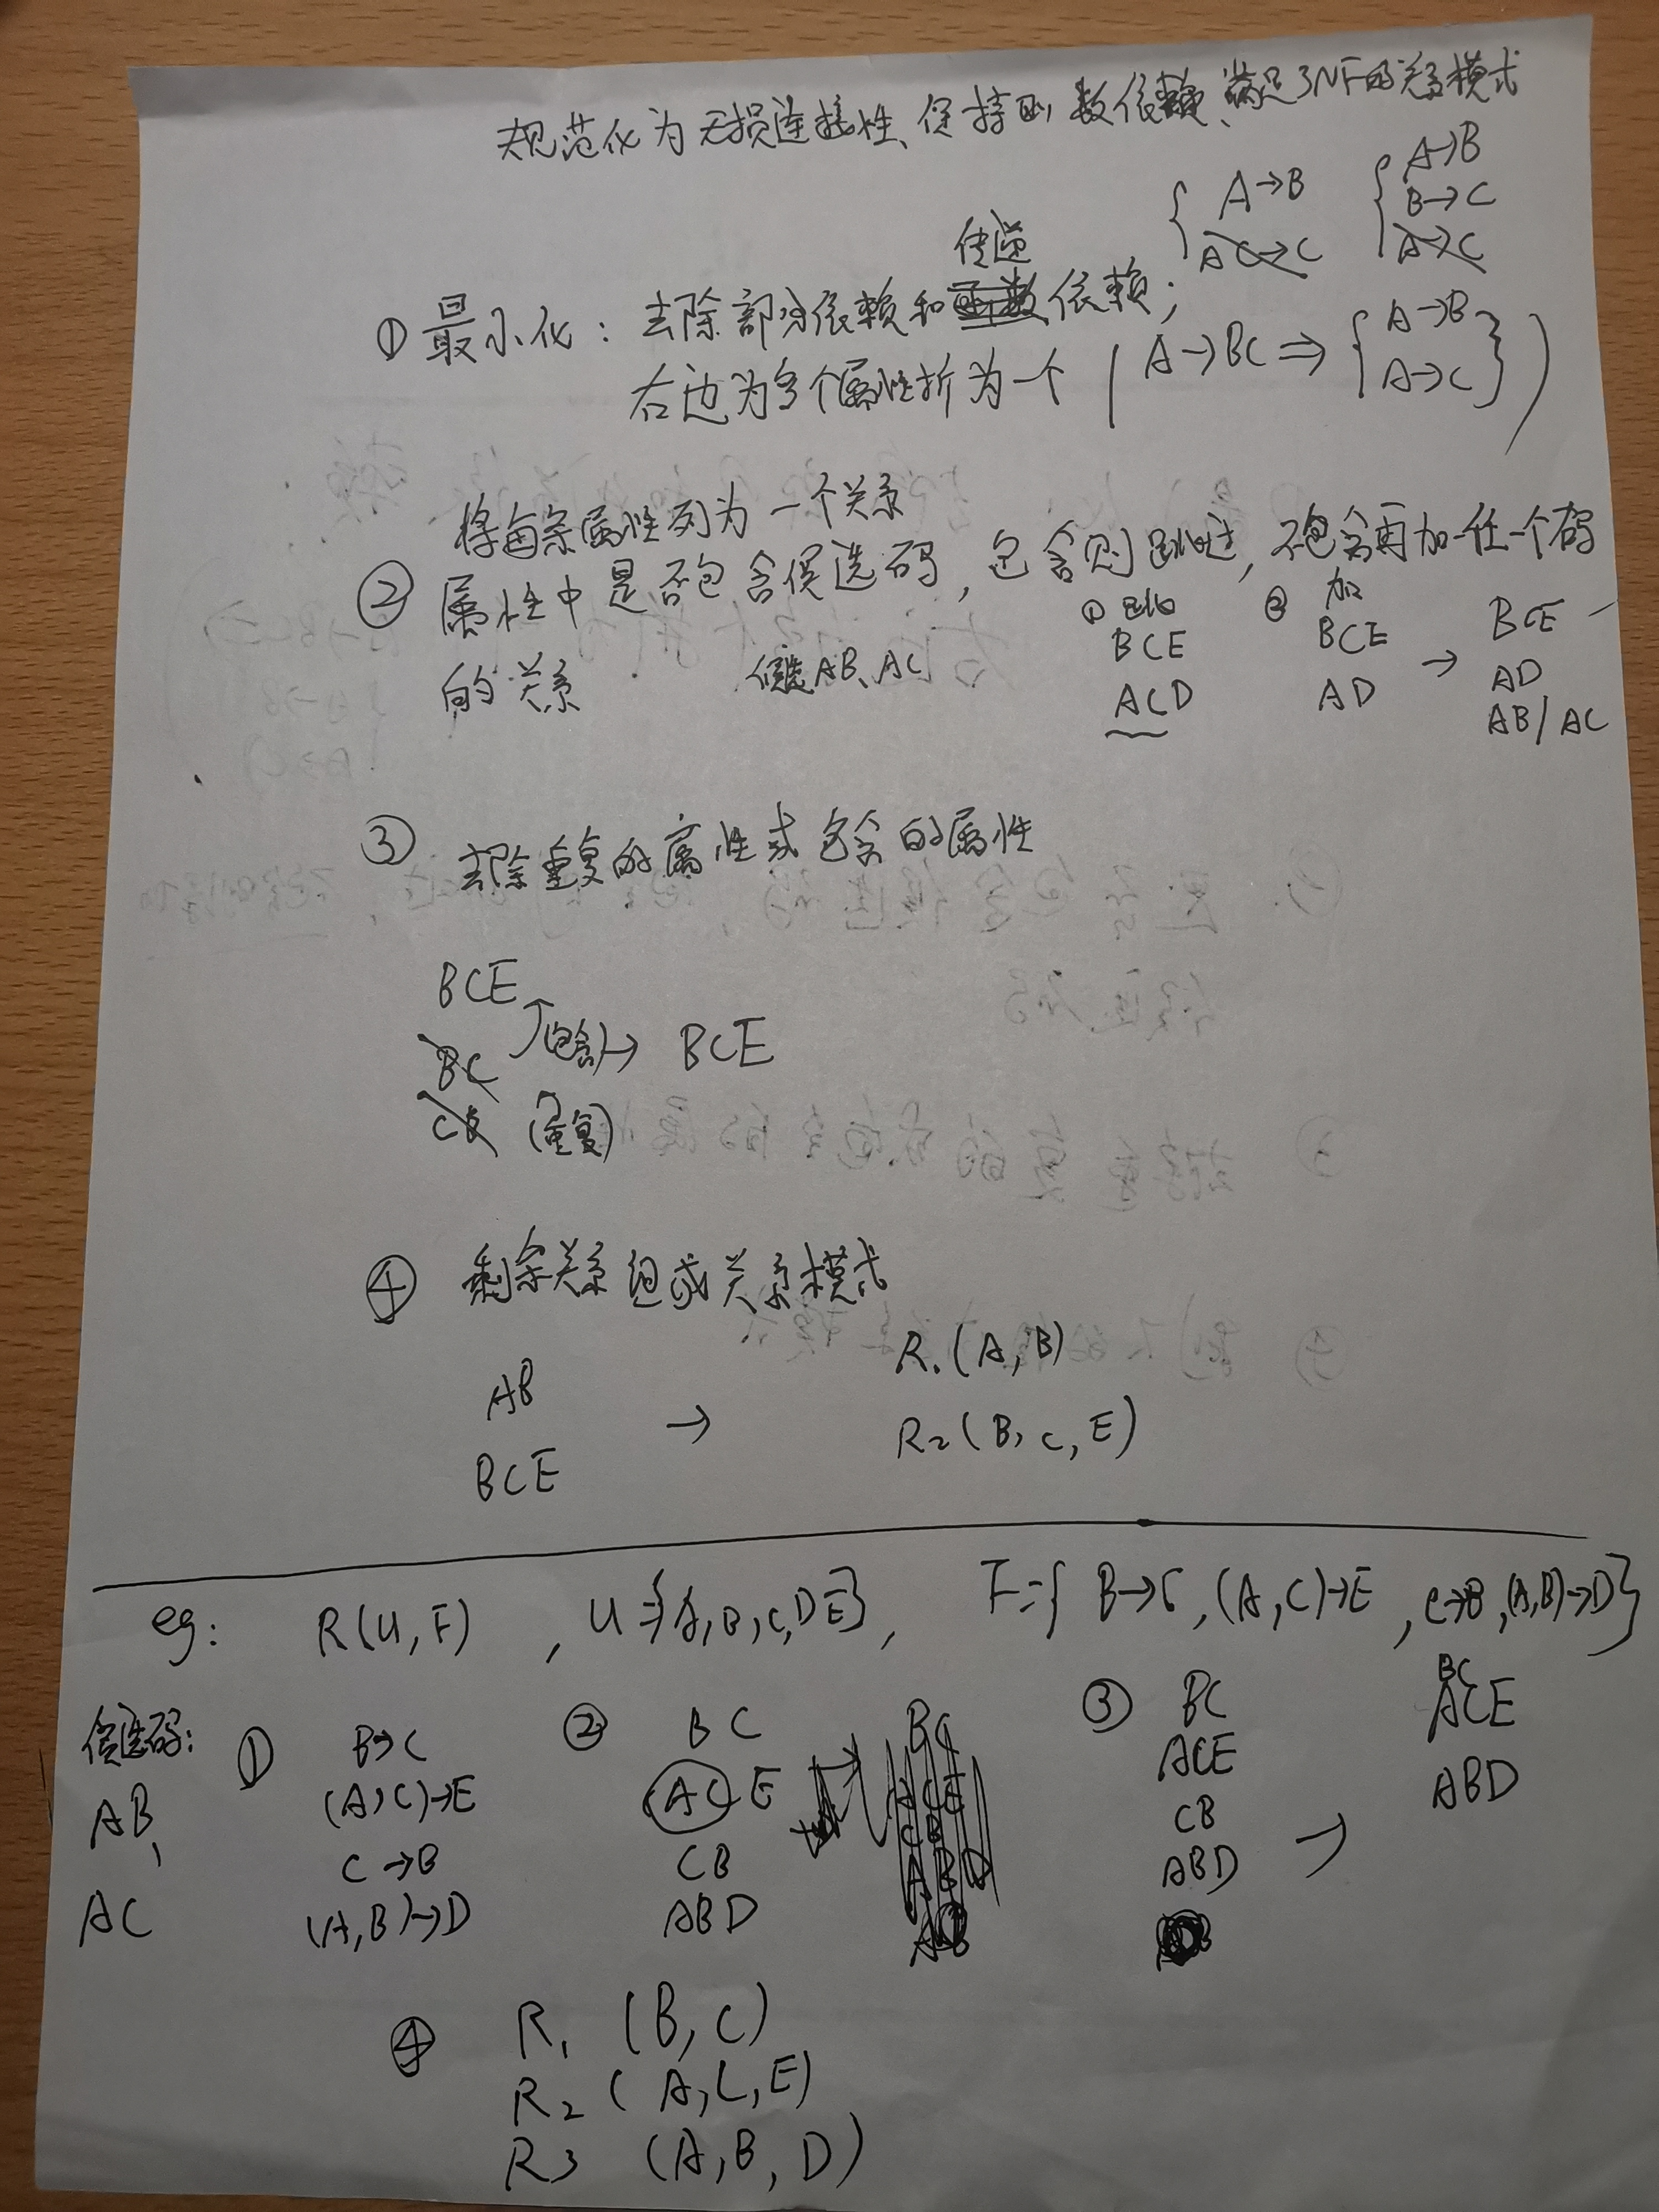 规范化为无损连接性、保持函数依赖、满足3NF的关系模式
{ A→B
AC→C
{ A→B
B→C
A→C
传递
① 最小化: 去除部分依赖和函数依赖;
右边为多个属性拆为一个 ( A→BC ⇒ { A→B
A→C } )
将每条属性列为一个关系
② 属性中是否包含候选码, 包含则跳过, 不包含再加一任一个码
的关系
候选AB、AC
① 跳过
BCE
ACD
② 加
BCE
AD
→
BCE
AD
AB/AC
③ 去除重复的属性或包含的属性
BCE
BC (包含) → BCE
CB (重复)
④ 剩余关系组成关系模式
AB
BCE
→
R1(A,B)
R2(B,C,E)
eg: R(U,F) , U={A,B,C,D E}, F={ B→C, (A,C)→E, C→B, (A,B)→D}
候选码:
AB,
AC
① B→C
(A,C)→E
C→B
(A,B)→D
② BC
ACE
CB
ABD
BC
ACE
CB
ABD
AB
③ BC
ACE
CB
ABD
→
BC
ACE
ABD
④ R1 (B,C)
R2 (A,C,E)
R3 (A,B,D)